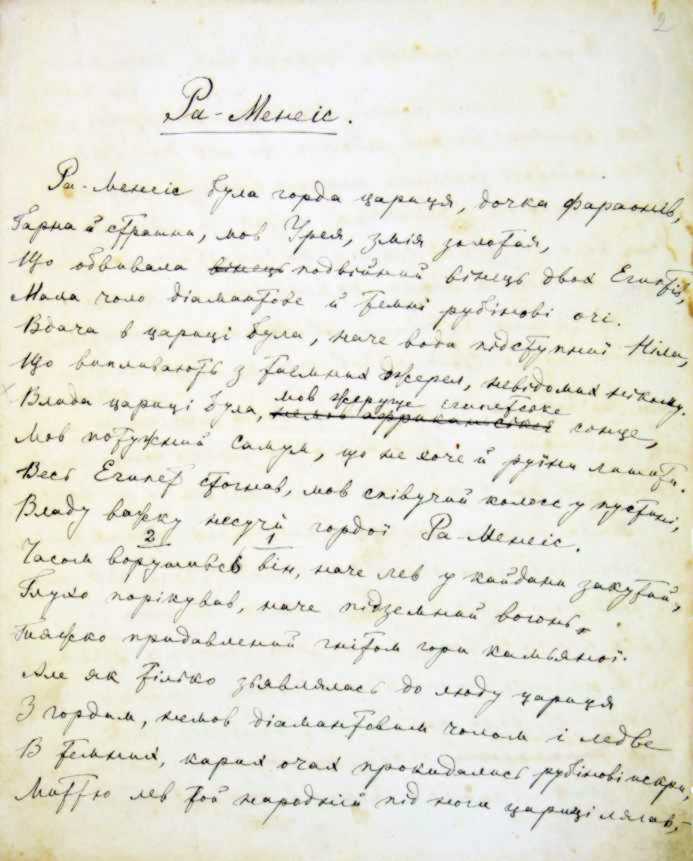 2
Ра-Менеіс.
Ра-Менеіс була горда цариця, дочка фараонів,
Гарна й страшна, мов Урея, змія золотая,
Що обвивала вінець подвійний вінець двох Египтів,
Мала чоло діамантове й темні рубінові очі.
Вдача в цариці була, наче вода підступної Ніла,
Що випливають з таємних джерел, невідомих нікому.
мов жеруще египетське
Влада цариці була, немов африканське сонце,
Мов потужний самум, що не хоче й руїни лишити.
Весь Египет стогнав, мов співучий колосс у пустині,
Владу важку несучи гордої Ра-Менеіс.
2 1
Часом ворушивсь він, наче лев у кайдани закутий,
Глухо порікував, наче підземний вогонь,
Тяжко придавлений гнітом гори камьяної.
Але як тілько зьявлялась до люду цариця
З гордим, немов діамантовим чолом і ледве
В темних, карих очах прокидались рубінові искри,
Миттю лев той народній під ноги цариці лягав,–